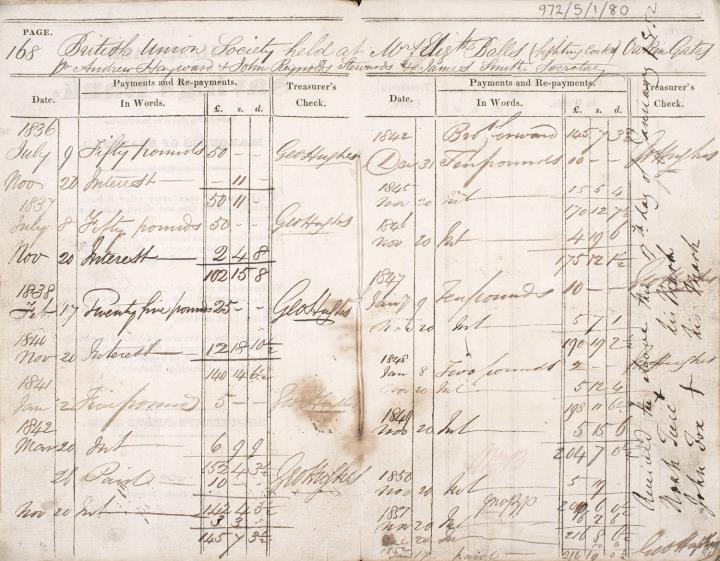 972/5/1/80
PAGE.
168 British Union Society held at Mrs Eligth Balls (Fighting Cocks)
pr Andrew Hayward & John Reynolds Stewards & James Smith Secretary
Date. Payments and Re-payments. Treasurer's Check.
In Words. £. s. d.
1836
July 9 Fifty pounds 50 - - Geo Hughes
Nov 20 Interest 11 -
50 11
1837
July 8 Fifty pounds 50 - - Geo Hughes
Nov 20 Interest 2 4 8
102 15 8
1838
Feb 17 Twenty five pounds 25 - - Geo Hughes
1840
Nov 20 Interest 12 18 10½
140 14 6½
1841
Jan 2 Five pounds 5 - - Geo Hughes
1842
Mar 20 Int 6 9 9
152 4 3½
26 Paid 10 - - Geo Hughes
Nov 20 Int 142 4 3½
3 3
145 7 3½
Date. Payments and Re-payments. Treasurer's Check.
In Words. £. s. d.
1842 Brot forward 145 7 3½
Dec 31 Ten pounds 10 - - Geo Hughes
1845
Nov 20 Int 15 5 4
170 12 7½
1846
Nov 20 Int 4 19 6
175 12 1½
1847
Jany 9 Ten pounds 10 - -
Nov 20 Int 5 7 1
190 19 2½
1848
Jan 8 Two pounds 2 - - Geo Hughes
Nov 20 Int 5 12 4
198 11 6½
1849
Nov 20 Int 5 15 6
204 7 0½
1850
Nov 20 Int 5
1851
Nov 20 Int
216 8 6½
1852
Jan 17 paid 216 Geo Hughes
Received the above this 17th day of January 1852
Noah his Mark
John Fox his Mark